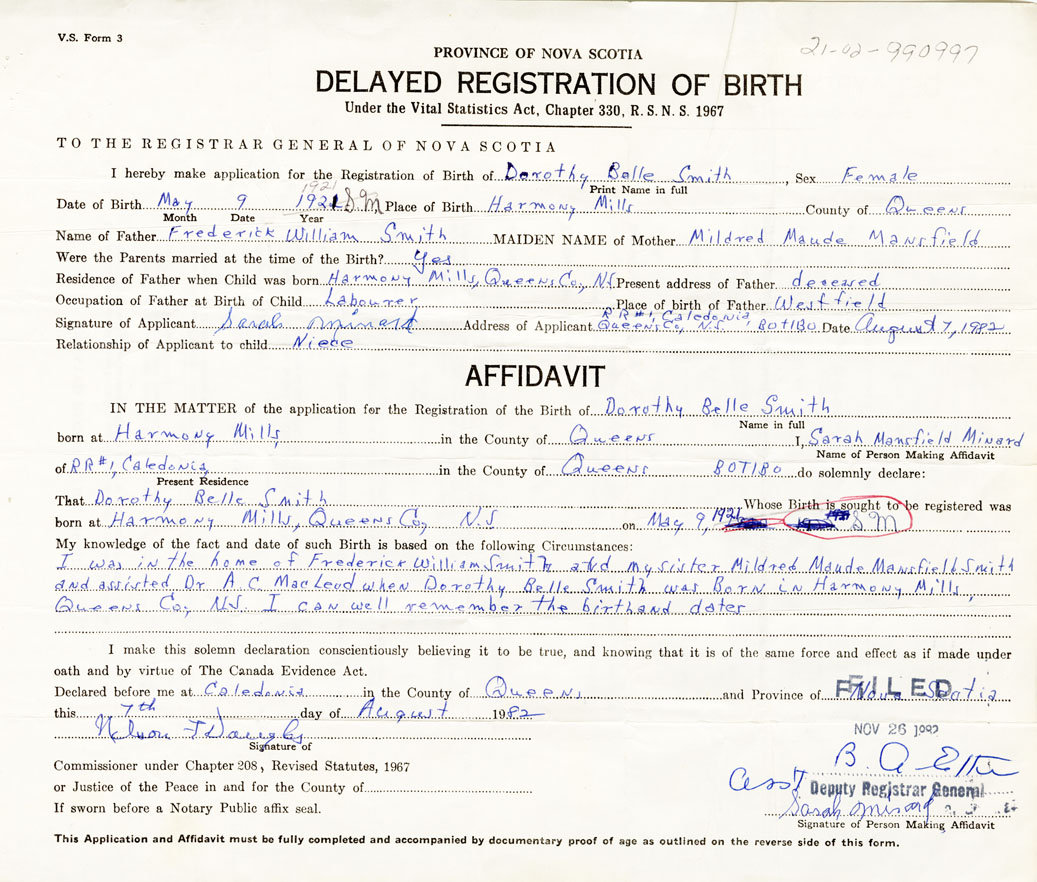 V.S. Form 3
21-02-990997
PROVINCE OF NOVA SCOTIA
DELAYED REGISTRATION OF BIRTH
Under the Vital Statistics Act, Chapter 330, R. S. N. S. 1967
TO THE REGISTRAR GENERAL OF NOVA SCOTIA
I hereby make application for the Registration of Birth of Dorothy Belle Smith, Sex Female
Print Name in full
1921
Date of Birth May 9 1921 S.M Place of Birth Harmony Mills County of Queens
Month Date Year
Name of Father Frederick William Smith MAIDEN NAME of Mother Mildred Maude Mansfield
Were the Parents married at the time of the Birth? Yes
Residence of Father when Child was born Harmony Mills, Queens Co, N.S Present address of Father deceased
Occupation of Father at Birth of Child Labourer Place of birth of Father Westfield
RR#1, Caledonia
Signature of Applicant Sarah Minard Address of Applicant Queens Co, N.S. BOT1BO Date August 7, 1982
Relationship of Applicant to child Niece
AFFIDAVIT
IN THE MATTER of the application for the Registration of the Birth of Dorothy Belle Smith
Name in full
born at Harmony Mills, in the County of Queens I, Sarah Mansfield Minard
Name of Person Making Affidavit
of RR#1, Caledonia in the County of Queens BOT1BO do solemnly declare:
Present Residence
That Dorothy Belle Smith Whose Birth is sought to be registered was
born at Harmony Mills, Queens Co, N.S on May 9, 1921 S M
My knowledge of the fact and date of such Birth is based on the following Circumstances:
I was in the home of Frederick William Smith and my sister Mildred Maude Mansfield Smith
and assisted Dr. A.C. MacLeod when Dorothy Belle Smith was Born in Harmony Mills,
Queens Co, N.S. I can well remember the birth and dates
I make this solemn declaration conscientiously believing it to be true, and knowing that it is of the same force and effect as if made under
oath and by virtue of The Canada Evidence Act.
Declared before me at Caledonia in the County of Queens and Province of Nova Scotia
FILED
this 7th day of August 1982
NOV 26 1982
Nelson
Signature of
B A
Commissioner under Chapter 208, Revised Statutes, 1967
Ass't Deputy Registrar General
or Justice of the Peace in and for the County of
Sarah Minard
If sworn before a Notary Public affix seal.
Signature of Person Making Affidavit
This Application and Affidavit must be fully completed and accompanied by documentary proof of age as outlined on the reverse side of this form.